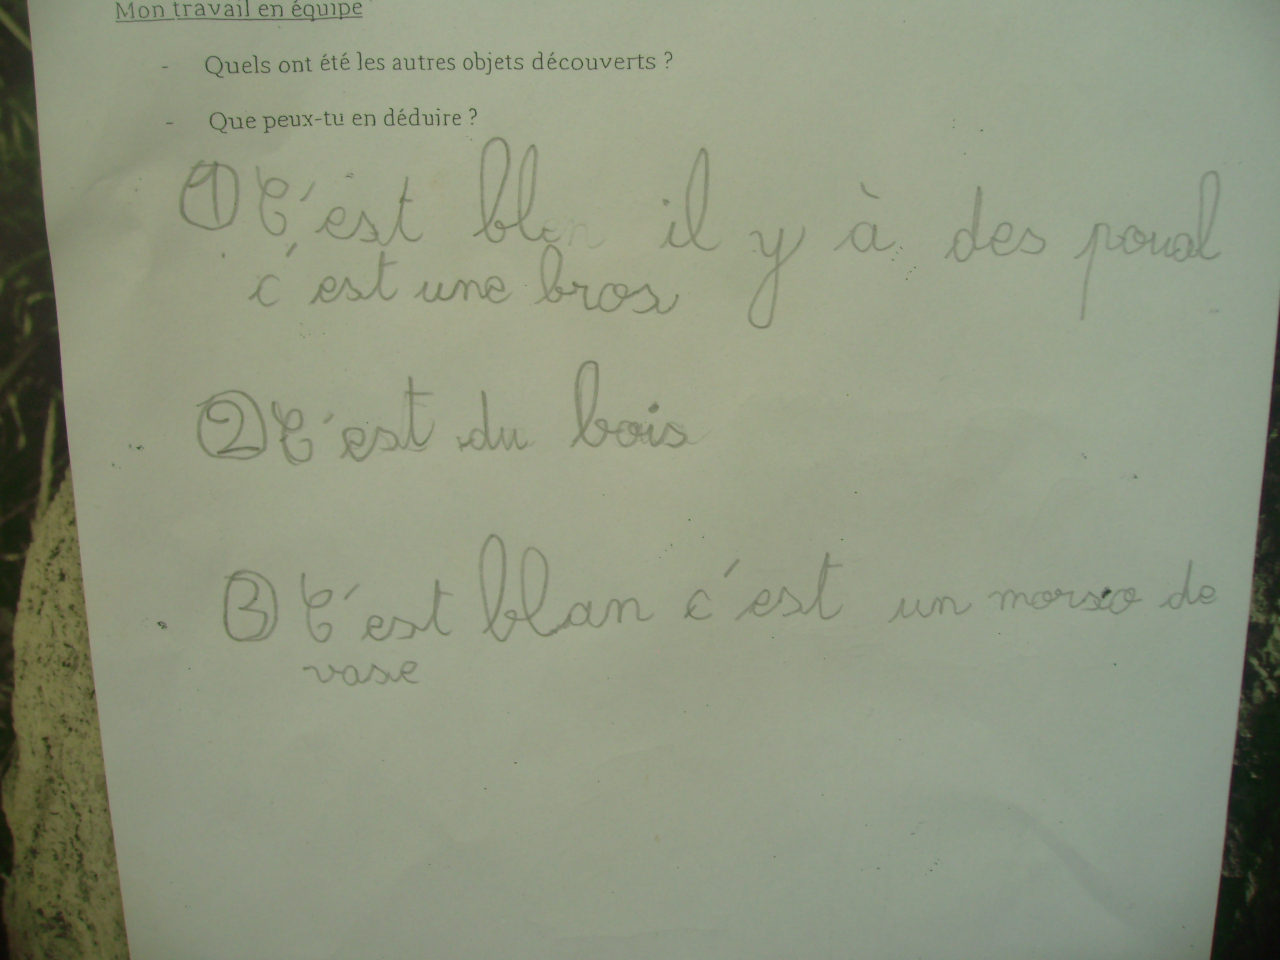 Mon travail en équipe
- Quels ont été les autres objets découverts ?
- Que peux-tu en déduire ?
① C'est blen il y à des poual
c'est une bros
② C'est du bois
③ C'est blan c'est un morso de
vase